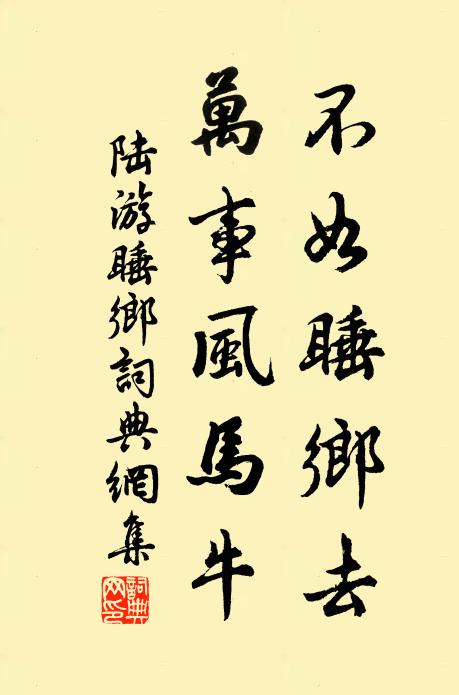 不如睡鄉去
萬事風馬牛
陸游睡鄉詞典網集
詞典網印